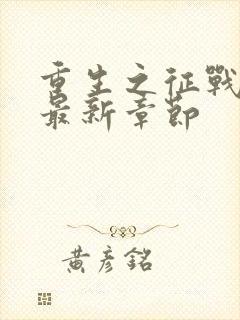 重生之征戰
最新章節
黃彥銘